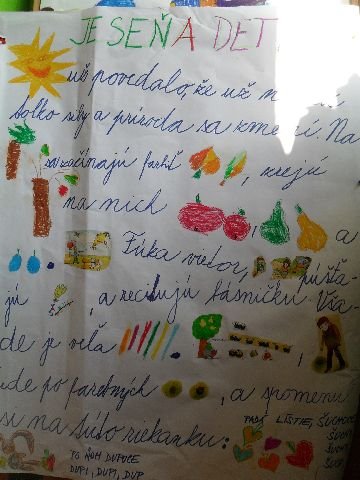 JESEŇ A DET
už povedalo, že už
toľko sily a príroda sa zmení. Na
sa začínajú farbiť , zrejú
na nich , a
. Fúka vietor, púšťa-
jú , a recitujú básničku. Vša-
de je veľa ,
ide po farebných , a spomenu
si na túto riekanku:
PADÁ LÍSTIE, ŠUCHOCE
ŠUCHY
ŠUCHY
ŠUP
PO ŇOM DUPOCE
DUPI, DUPI, DUP